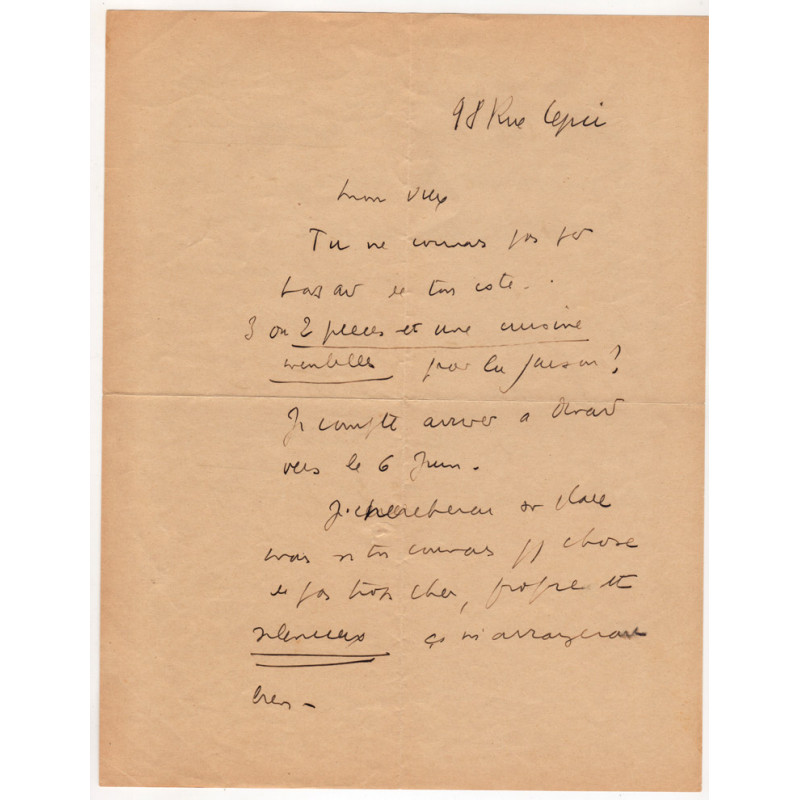 98 Rue Lepic
Mon vieux
Tu ne connais pas par
hasard de ton côté..
3 ou 2 pièces et une cuisine
meublées pour la saison?
Je compte arriver à Dinard
vers le 6 Juin.
Je chercherai sur place
mais si tu connais qq chose
de pas trop cher, propre et
silencieux ça m'arrangerait
bien -